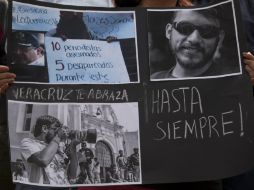 10 periodistas
asesinados
5 desaparecidos
Durante este
VERACRUZ TE ABRAZA
HASTA
SIEMPRE!